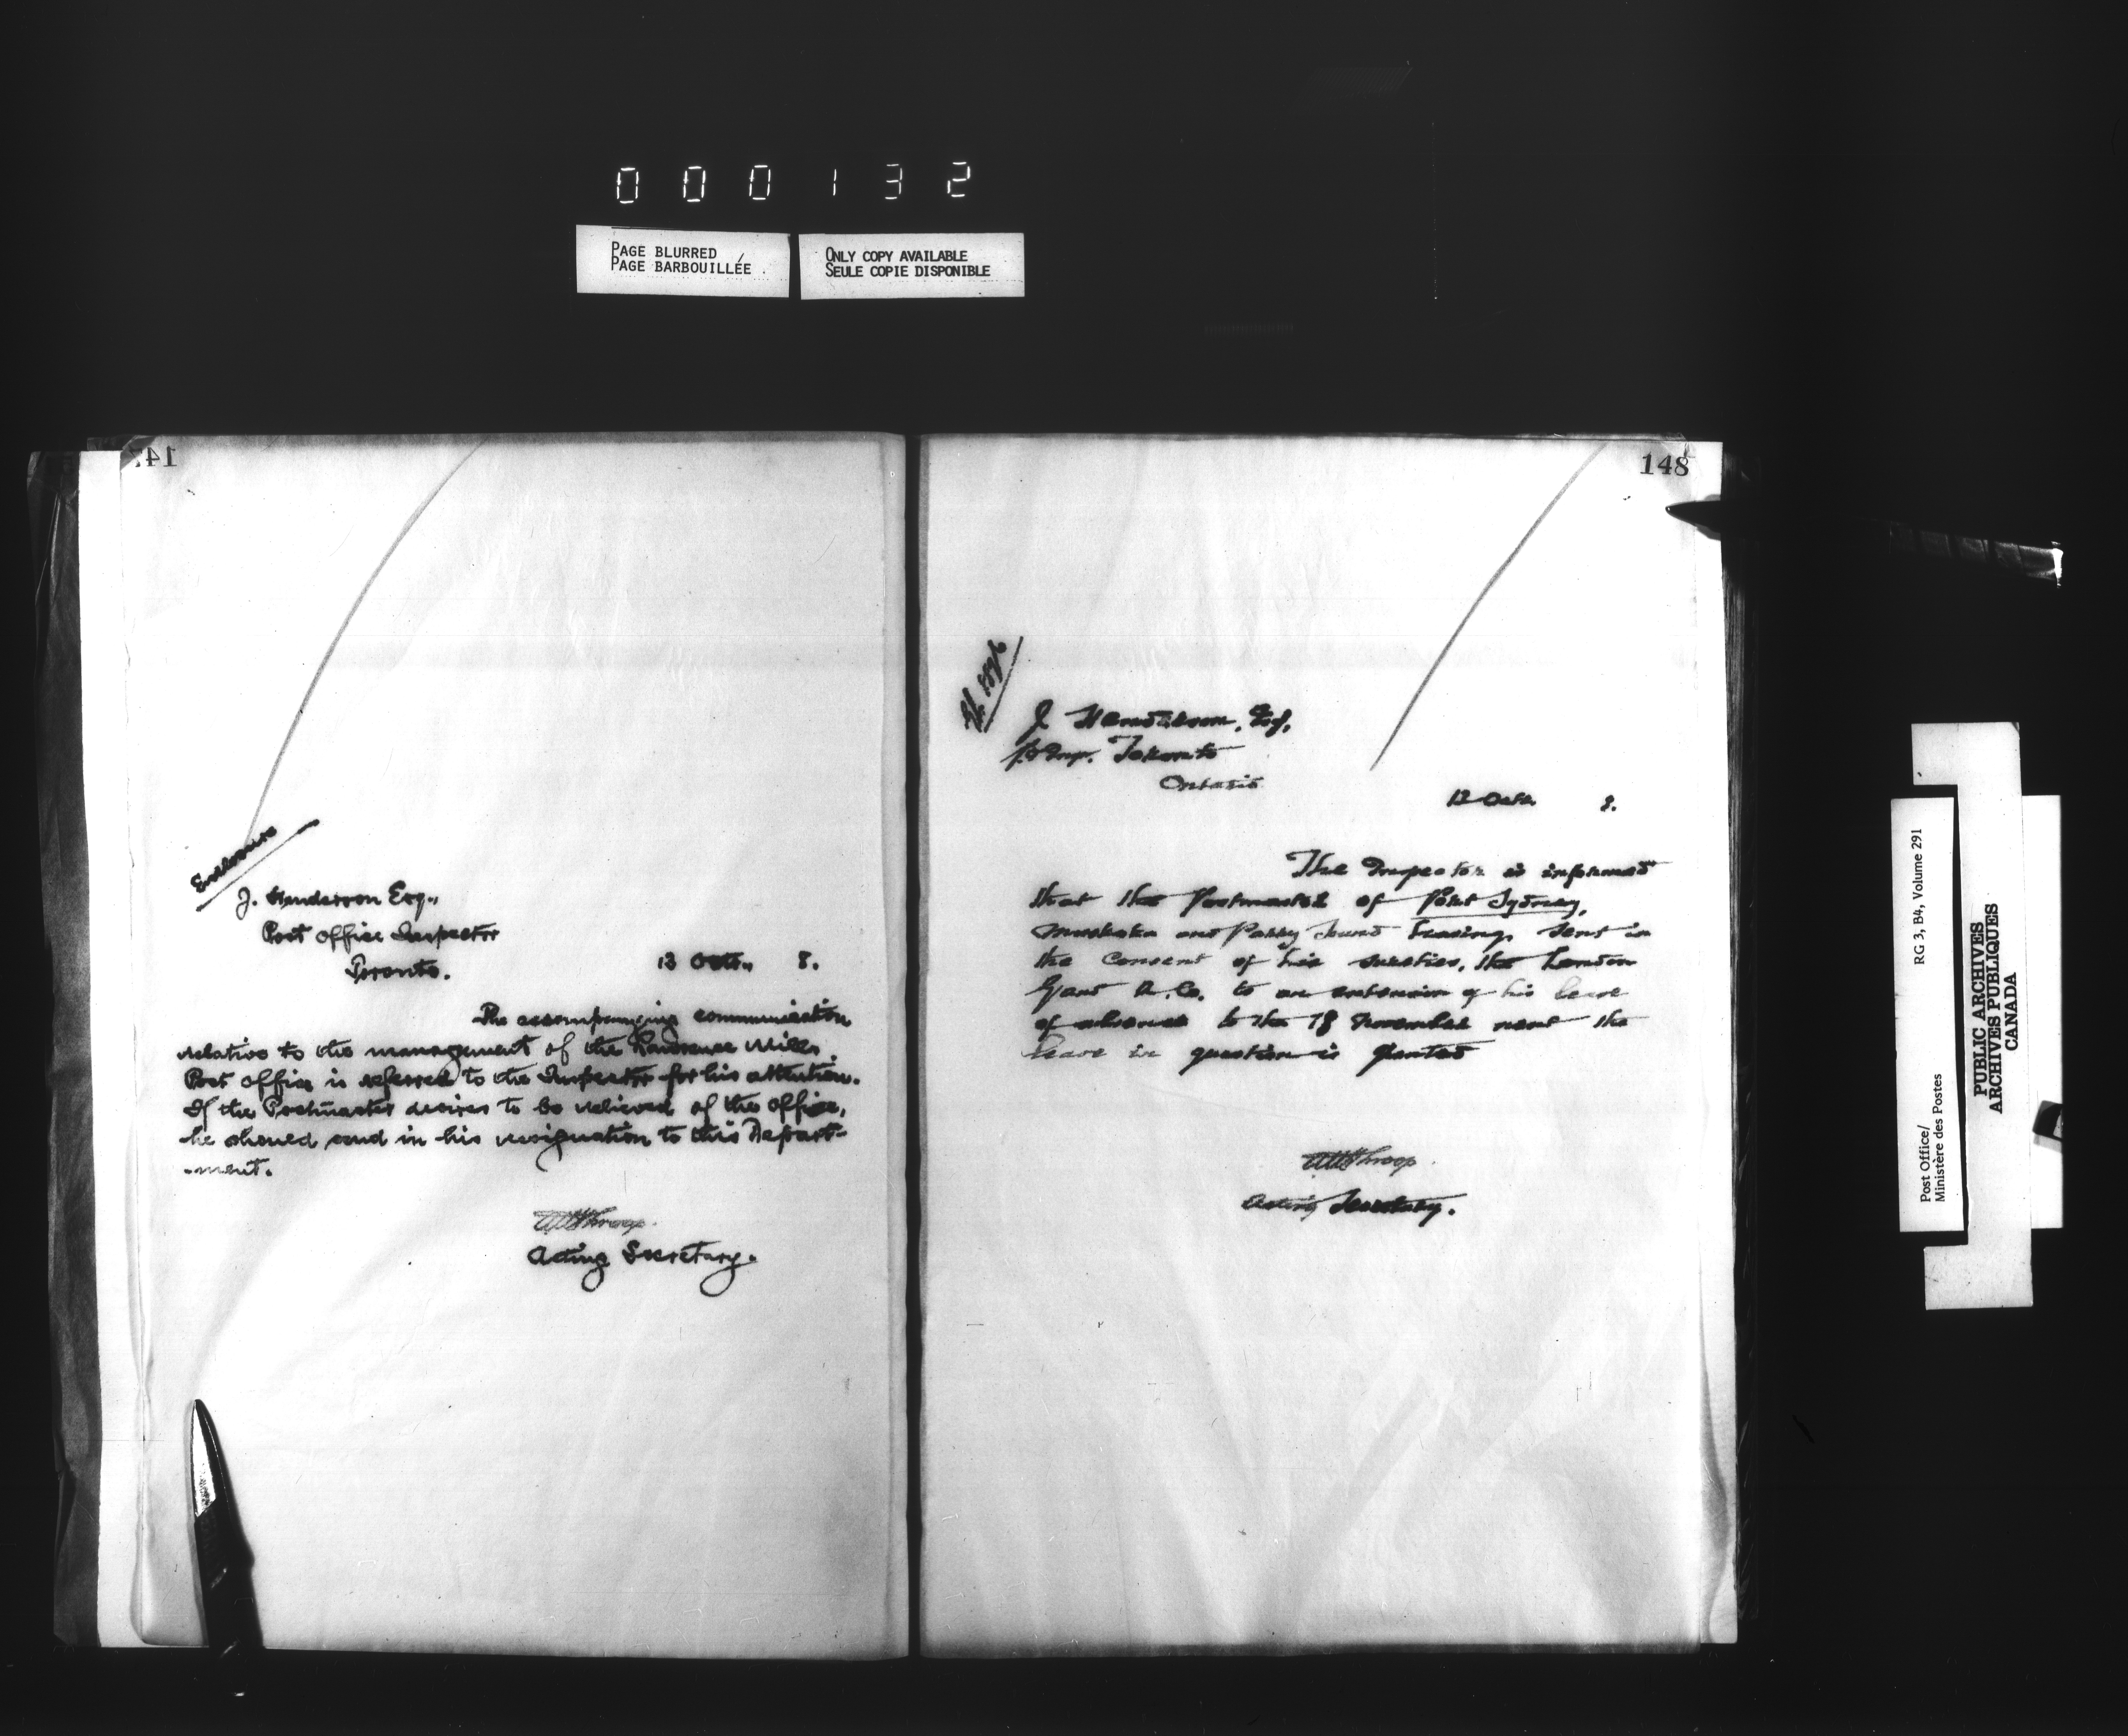 000132
PAGE BLURRED
PAGE BARBOUILLÉE
ONLY COPY AVAILABLE
SEULE COPIE DISPONIBLE
147
Enclosure
J. Henderson Esq.,
Post Office Inspector
Toronto.
13 Octr.,   8.
The accompanying communication
relative to the management of the Lawrence Mills
Post Office is referred to the Inspector for his attention.
If the Postmaster desires to be relieved of the office,
he should send in his resignation to this Depart-
-ment.
Throop.
Acting Secretary.
148
J. Henderson, Esq,
P.O. Insp. Toronto
Ontario
13 Octr.   8.
The Inspector is informed
that the Postmaster of Port Sydney,
Muskoka and Parry Sound having sent in
the consent of his sureties, the London
Guar A. Co. to an extension of his leave
of absence to the 18 November next the
leave in question is granted
Throop.
Acting Secretary.
Post Office/
Ministère des Postes
RG 3, B4, Volume 291
PUBLIC ARCHIVES
ARCHIVES PUBLIQUES
CANADA